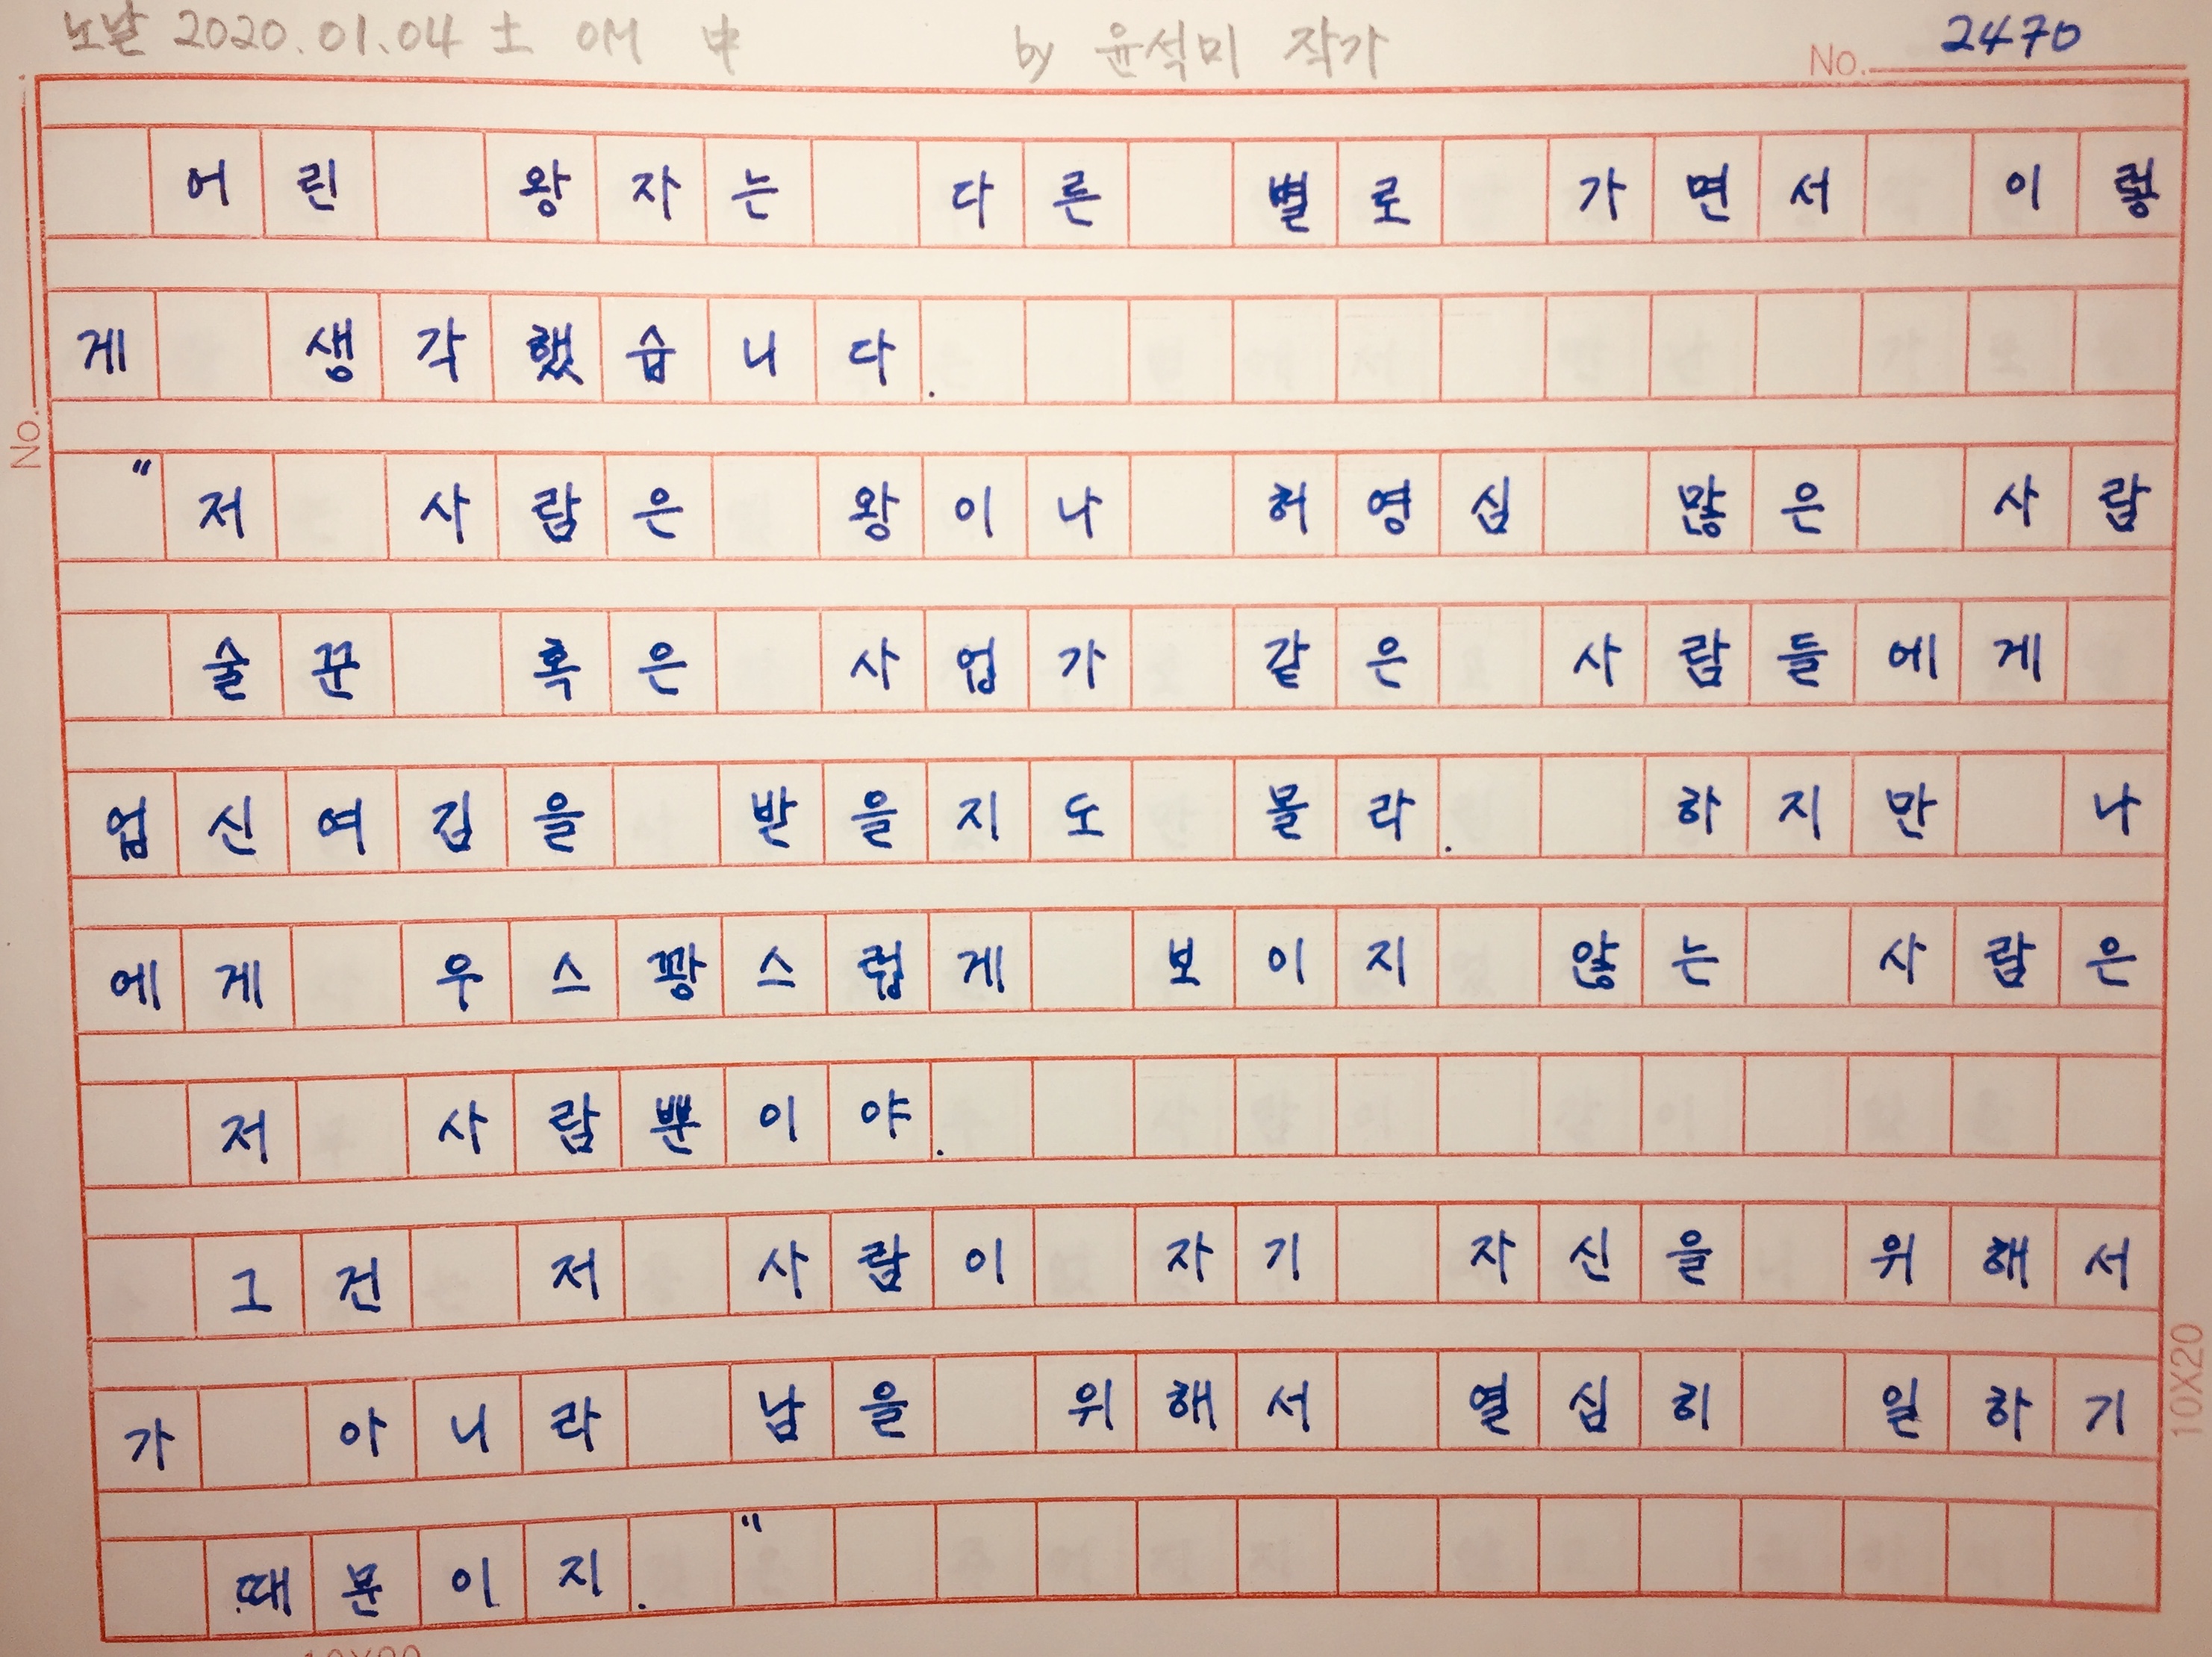 노날 2020.01.04 土 OM 中 by 윤석미 작가 No. 2470
어린 왕자는 다른 별로 가면서 이렇
게 생각했습니다.
"저 사람은 왕이나 허영심 많은 사람
술꾼 혹은 사업가 같은 사람들에게
No.
업신여김을 받을지도 몰라. 하지만 나
에게 우스꽝스럽게 보이지 않는 사람은
저 사람뿐이야.
그건 저 사람이 자기 자신을 위해서
가 아니라 남을 위해서 열심히 일하기
때문이지."
10X20